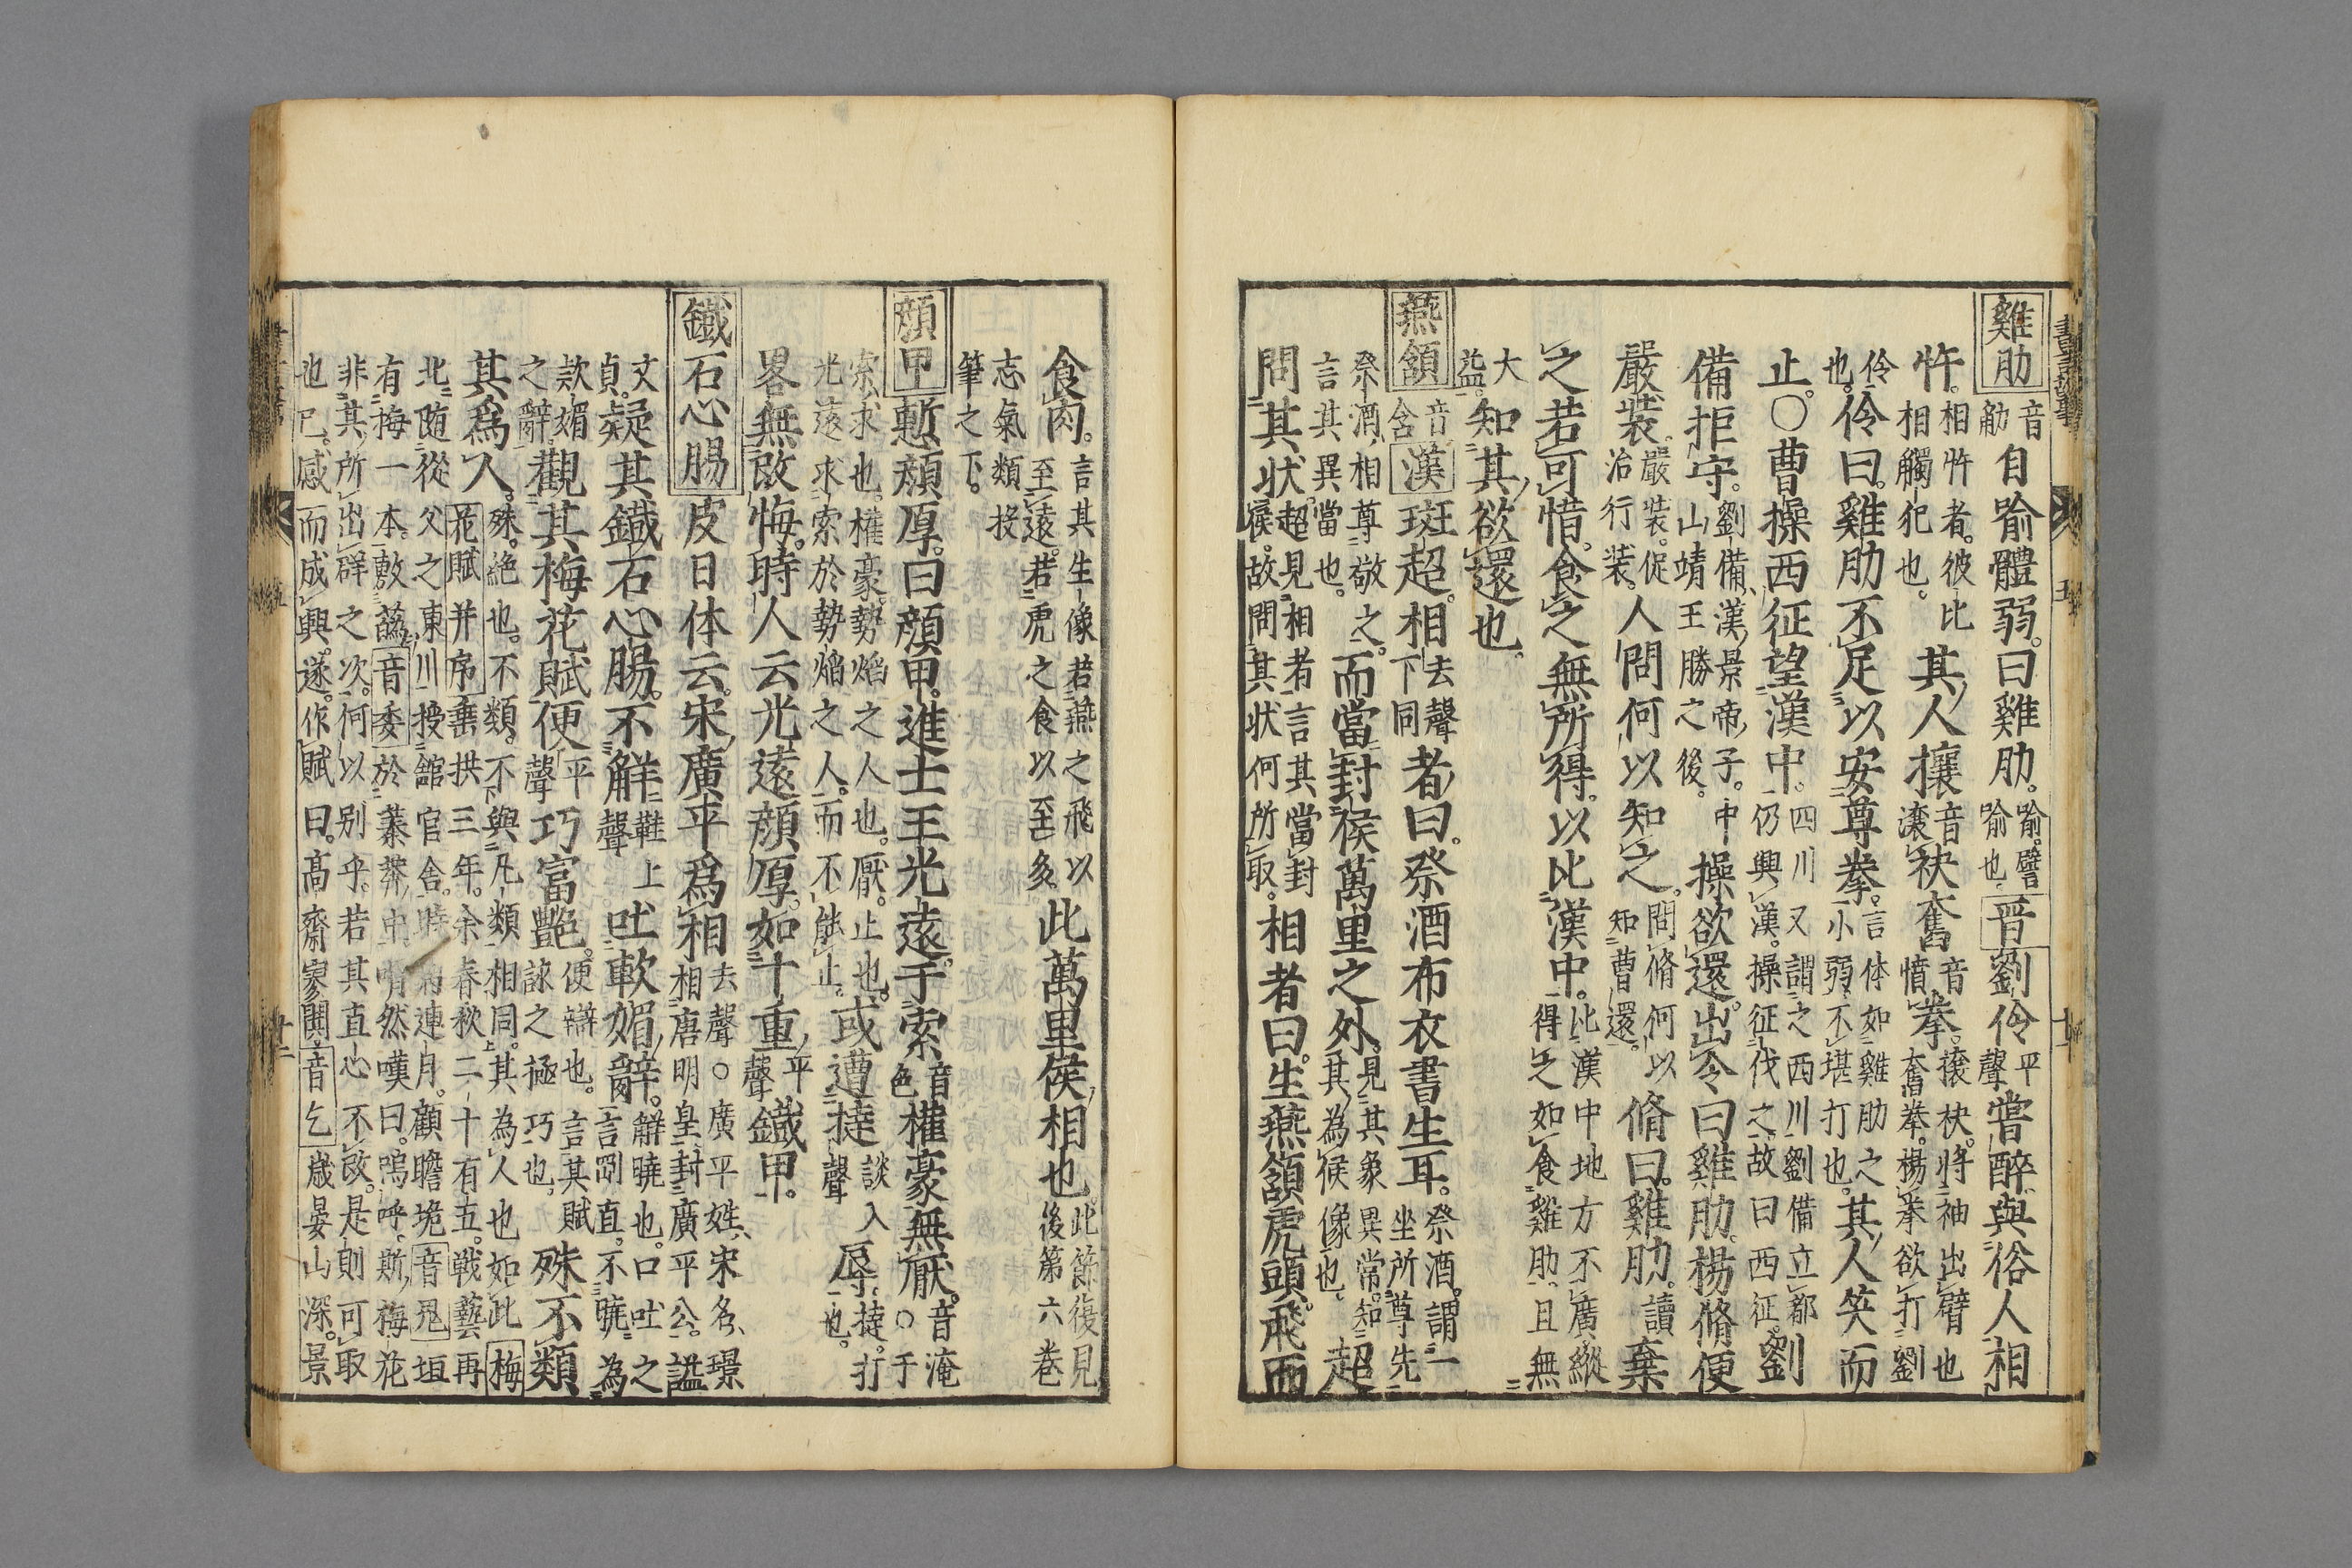 雞肋音舫自喻體弱曰雞肋喻譬喻也晋劉伶平聲嘗醉與俗人相
忤相忤者彼比相觸犯也其人攘音瀼袂奮音憤拳攘袂将袖出臂也奮拳揚拳欲打劉
伶也伶曰雞肋不足以安尊拳言体如雞肋之小弱不堪打也其人笑而
止○曹操西征望漢中四川又謂之西川劉備立都仍興漢操征伐之故曰西征劉
備拒守劉備漢景帝子中山靖王勝之後操欲還出令曰雞肋楊脩便
嚴裝嚴裝促治行装人問何以知之問脩何以知曹還脩曰雞肋讀棄
之若可惜食之無所得以比漢中比漢中地方不廣縱得之如食雞肋且無
大益知其欲還也
燕頷音含漢班超相去聲下同者曰祭酒布衣書生耳祭酒謂一坐所尊先
祭酒相尊敬之言其異當也而當封侯萬里之外見其象異常知其為侯像也超
問其状超見相者言其當封侯故問其状何所取相者曰生燕頷虎頭飛而
食肉言其生像若燕之飛以至遠若虎之食以至多此萬里侯相也此節復見後第六卷
志氣類投筆之下
顔甲慙顔厚曰顔甲進士王光遠于索音色權豪無厭音淹○于
索求也權豪勢焰之人也厭止也光遠求索於勢焰之人而不能止或遭撻談入聲辱撻打也
畧無改悔時人云光遠顔厚如十重平聲鐵甲
鐵石心腸皮日休云宋廣平爲相去聲○廣平姓宋名璟相唐明皇封廣平公謚
文貞疑其鐵石心腸不觧鞋上聲吐軟媚辭觧曉也口吐之言剛直不曉為
欵媚之辭觀其梅花賦便平聲巧富艶便辯也言其賦詠之極巧也殊不類
其爲人殊絶也不類不與凡類相同其為人也如此梅
花賦并序垂拱三年余春秋二十有五戰藝再
北随從父之東川授舘官舎時病連月顧瞻圮音𡵆垣
有梅一本敷蘤音委於蓁莽中喟然嘆曰嗚呼斯梅花
非其所出群之次何以别乎若其直心不改是則可取
也已感而成興遂作賦曰高齋寥闃音乞歳晏山深景